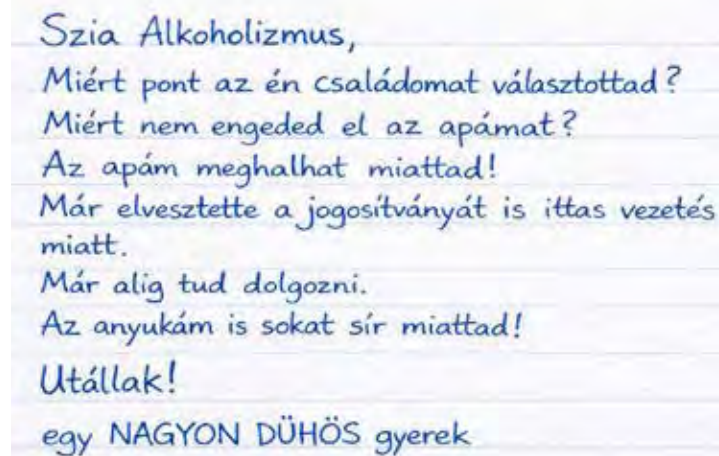 Szia Alkoholizmus,
Miért pont az én családomat választottad?
Miért nem engeded el az apámat?
Az apám meghalhat miattad!
Már elvesztette a jogosítványát is ittas vezetés
miatt.
Már alig tud dolgozni.
Az anyukám is sokat sír miattad!
Utállak!
egy NAGYON DÜHÖS gyerek